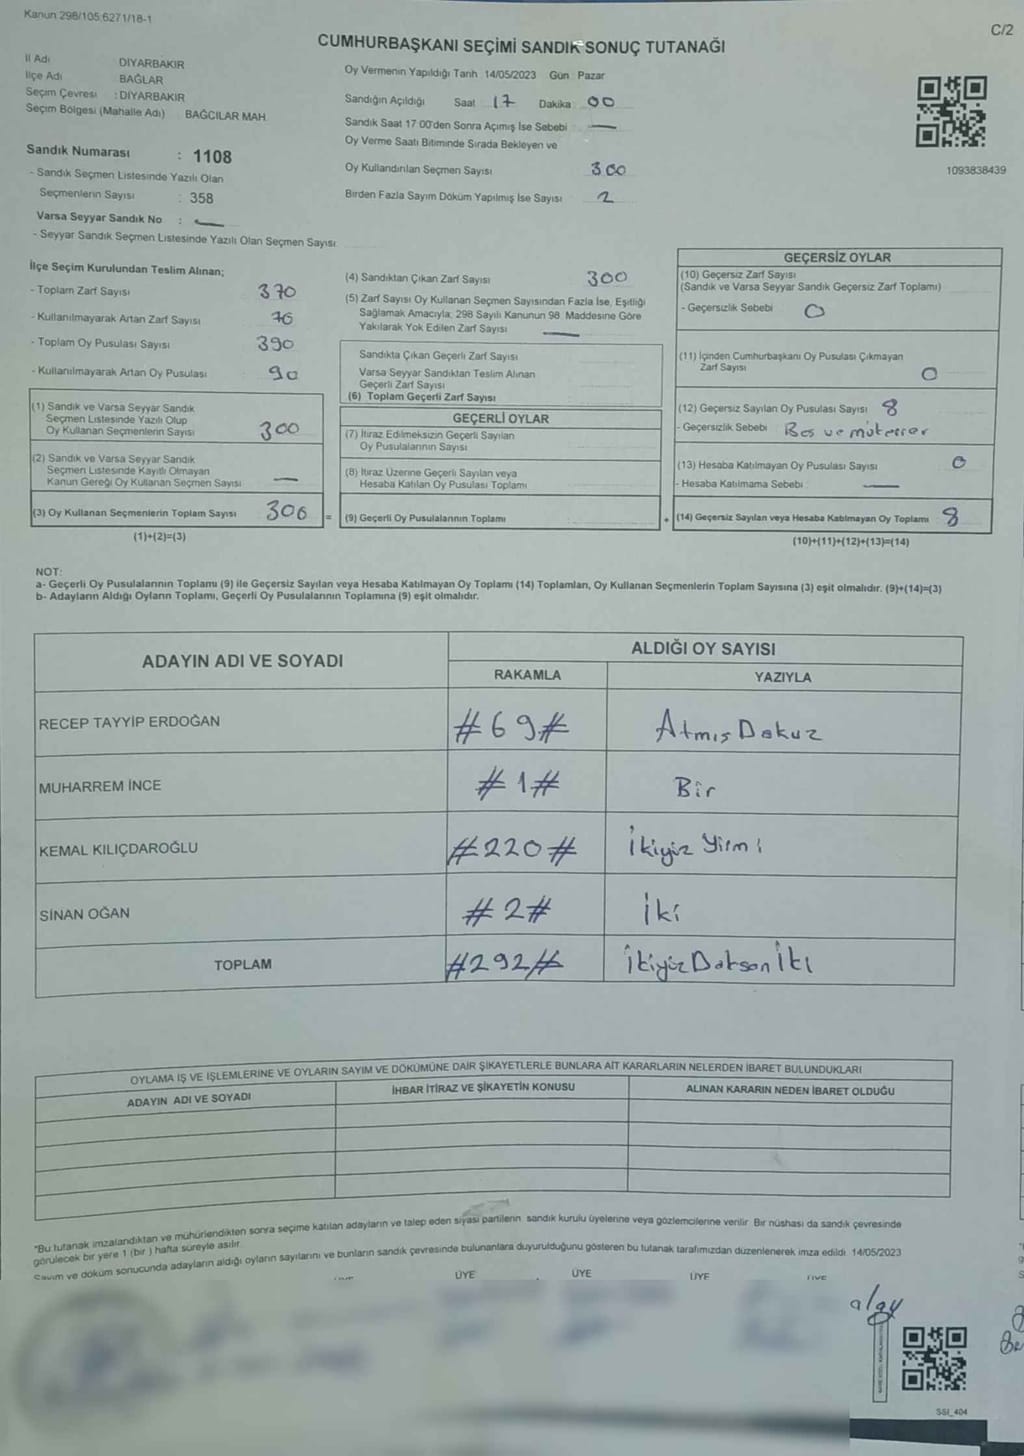 Kanun 298/105,6271/18-1
C/2
CUMHURBAŞKANI SEÇİMİ SANDIK SONUÇ TUTANAĞI
İl Adı DİYARBAKIR
İlçe Adı BAĞLAR
Seçim Çevresi : DİYARBAKIR
Seçim Bölgesi (Mahalle Adı) BAĞCILAR MAH.
Oy Vermenin Yapıldığı Tarih 14/05/2023 Gün Pazar
Sandığın Açıldığı Saat 17 Dakika 00
Sandık Saat 17 00'den Sonra Açımış İse Sebebi —
Oy Verme Saati Bitiminde Sırada Bekleyen ve
Oy Kullandırılan Seçmen Sayısı 300
Birden Fazla Sayım Döküm Yapılmış İse Sayısı 2
1093838439
Sandık Numarası : 1108
- Sandık Seçmen Listesinde Yazılı Olan
Seçmenlerin Sayısı : 358
Varsa Seyyar Sandık No : —
- Seyyar Sandık Seçmen Listesinde Yazılı Olan Seçmen Sayısı
İlçe Seçim Kurulundan Teslim Alınan;
- Toplam Zarf Sayısı 370
- Kullanılmayarak Artan Zarf Sayısı 76
- Toplam Oy Pusulası Sayısı 390
- Kullanılmayarak Artan Oy Pusulası 90
(1) Sandık ve Varsa Seyyar Sandık
Seçmen Listesinde Yazılı Olup
Oy Kullanan Seçmenlerin Sayısı 300
(2) Sandık ve Varsa Seyyar Sandık
Seçmen Listesinde Kayıtlı Olmayan
Kanun Gereği Oy Kullanan Seçmen Sayısı —
(3) Oy Kullanan Seçmenlerin Toplam Sayısı 306 =
(1)+(2)=(3)
(4) Sandıktan Çıkan Zarf Sayısı 300
(5) Zarf Sayısı Oy Kullanan Seçmen Sayısından Fazla İse, Eşitliği
Sağlamak Amacıyla; 298 Sayılı Kanunun 98. Maddesine Göre
Yakılarak Yok Edilen Zarf Sayısı —
Sandıkta Çıkan Geçerli Zarf Sayısı
Varsa Seyyar Sandıktan Teslim Alınan
Geçerli Zarf Sayısı
(6) Toplam Geçerli Zarf Sayısı
GEÇERLİ OYLAR
(7) İtiraz Edilmeksizin Geçerli Sayılan
Oy Pusulalarının Sayısı
(8) İtiraz Üzerine Geçerli Sayılan veya
Hesaba Katılan Oy Pusulası Toplamı
(9) Geçerli Oy Pusulalarının Toplamı +
GEÇERSİZ OYLAR
(10) Geçersiz Zarf Sayısı
(Sandık ve Varsa Seyyar Sandık Geçersiz Zarf Toplamı)
- Geçersizlik Sebebi 0
(11) İçinden Cumhurbaşkanı Oy Pusulası Çıkmayan
Zarf Sayısı 0
(12) Geçersiz Sayılan Oy Pusulası Sayısı 8
- Geçersizlik Sebebi Bos ve mükerrer
(13) Hesaba Katılmayan Oy Pusulası Sayısı 0
- Hesaba Katılmama Sebebi —
(14) Geçersiz Sayılan veya Hesaba Katılmayan Oy Toplamı 8
(10)+(11)+(12)+(13)=(14)
NOT:
a- Geçerli Oy Pusulalarının Toplamı (9) ile Geçersiz Sayılan veya Hesaba Katılmayan Oy Toplamı (14) Toplamları, Oy Kullanan Seçmenlerin Toplam Sayısına (3) eşit olmalıdır. (9)+(14)=(3)
b- Adayların Aldığı Oyların Toplamı, Geçerli Oy Pusulalarının Toplamına (9) eşit olmalıdır.
ADAYIN ADI VE SOYADI
ALDIĞI OY SAYISI
RAKAMLA YAZIYLA
RECEP TAYYİP ERDOĞAN #69# Atmış Dokuz
MUHARREM İNCE #1# Bir
KEMAL KILIÇDAROĞLU #220# İkiyüz Yirmi
SİNAN OĞAN #2# İki
TOPLAM #292# İkiyüz Doksan İki
OYLAMA İŞ VE İŞLEMLERİNE VE OYLARIN SAYIM VE DÖKÜMÜNE DAİR ŞİKAYETLERLE BUNLARA AİT KARARLARIN NELERDEN İBARET BULUNDUKLARI
ADAYIN ADI VE SOYADI İHBAR İTİRAZ VE ŞİKAYETİN KONUSU ALINAN KARARIN NEDEN İBARET OLDUĞU
"Bu tutanak imzalandıktan ve mühürlendikten sonra seçime katılan adayların ve talep eden siyasi partilerin sandık kurulu üyelerine veya gözlemcilerine verilir Bir nüshası da sandık çevresinde
görülecek bir yere 1 (bir ) hafta süreyle asılır.
Sayım ve döküm sonucunda adayların aldığı oyların sayılarını ve bunların sandık çevresinde bulunanlara duyurulduğunu gösteren bu tutanak tarafımızdan düzenlenerek imza edildi 14/05/2023
ÜYE ÜYE ÜYE ÜYE ÜYE
SSI_404